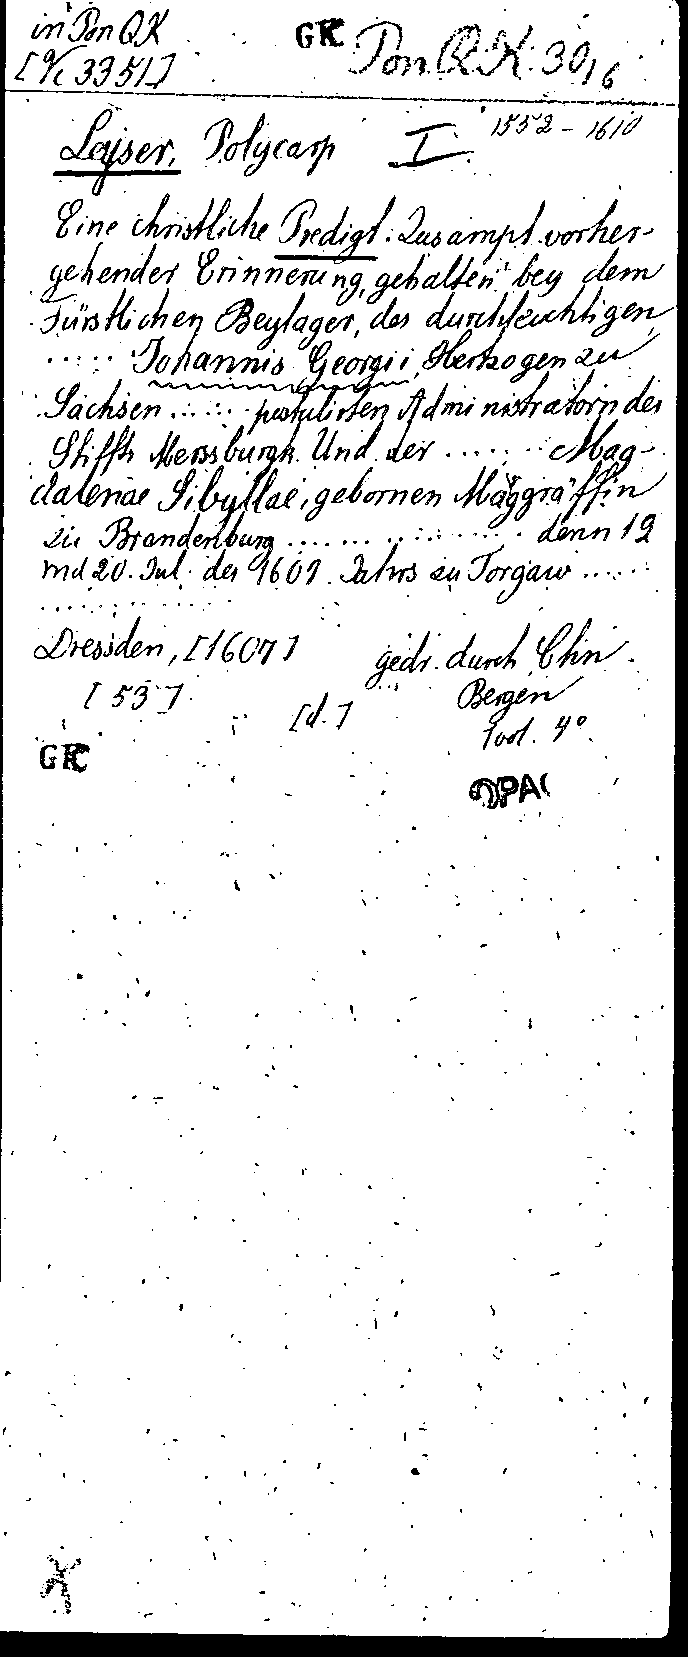 in Pon QK GK Pon QK. 30, 6
[Vc 3351]
Lejser, Polycarp I 1552 - 1610
Eine christliche Predigt. Zusampt vorher-
gehender Erinnerung, gehalten bey dem
Fürstlichen Beylager, des durchleuchtigen
..... Johannis Georgii, Hertzogen zu
Sachsen ...... postulirten Administratorn des
Stiffts Merssburgk. Und der ....... Mag-
dalenae Sibyllae, gebornen Marggräffin
zu Brandenburg ................ denn 19
und 20. Jul. des 1607. Jahrs zu Torgaw ......
.............
Dressden, [1607] gedr. durch Chn.
[53] [d.] Bergen
4°.
GK
OPAC